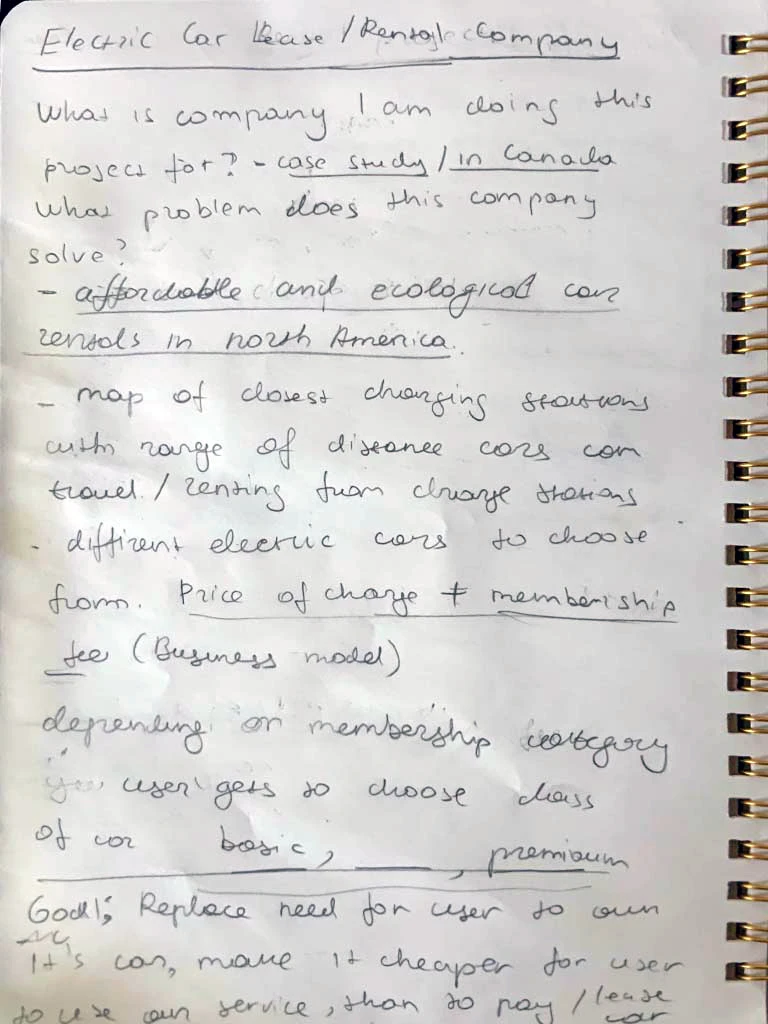 Electric Car Lease / Rental Company
What is company I am doing this
project for? - case study / in Canada
What problem does this company
solve?
- affordable and ecological car
rentals in north America.
- map of closest charging stations
with range of distance cars can
travel / renting from charge stations
- diffirent electric cars to choose
from. Price of charge + membership
fee (Business model)
depending on membership category
user gets to choose class
of car basic, ____, premium
Goal: Replace need for user to own
it's car, make it cheaper for user
to use our service, than to pay / lease
car